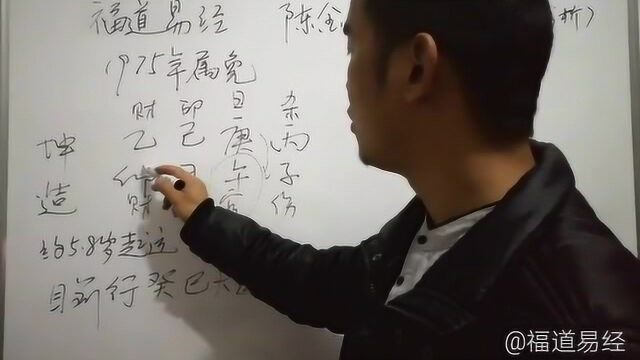 福道易经 陈金 析)
1975年属兔
财 印 日 杀
坤 乙 己 庚 丙
午 子
造 财 伤
约5.8岁起运
目前行癸巳大
@福道易经